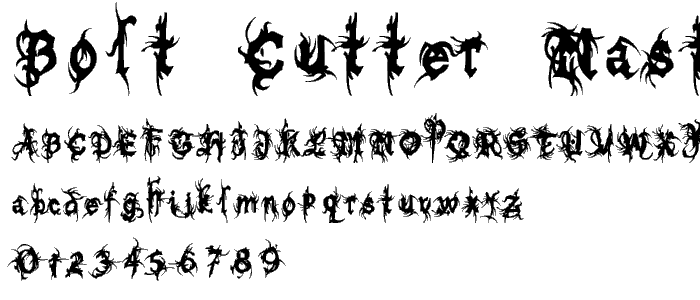 Bolt Cutter Nast
ABCDEFGHIJKLMNOPQRSTUVWXY
abcdefghijklmnopqrstuvwxyz
0123456789